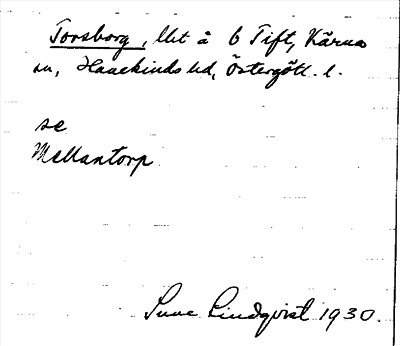 Torsborg, lht å 6 Tift, Kärna
sn, Hanekinds hd, Östergötl. l.
se
Mellantorp
Sune Lindqvist 1930.